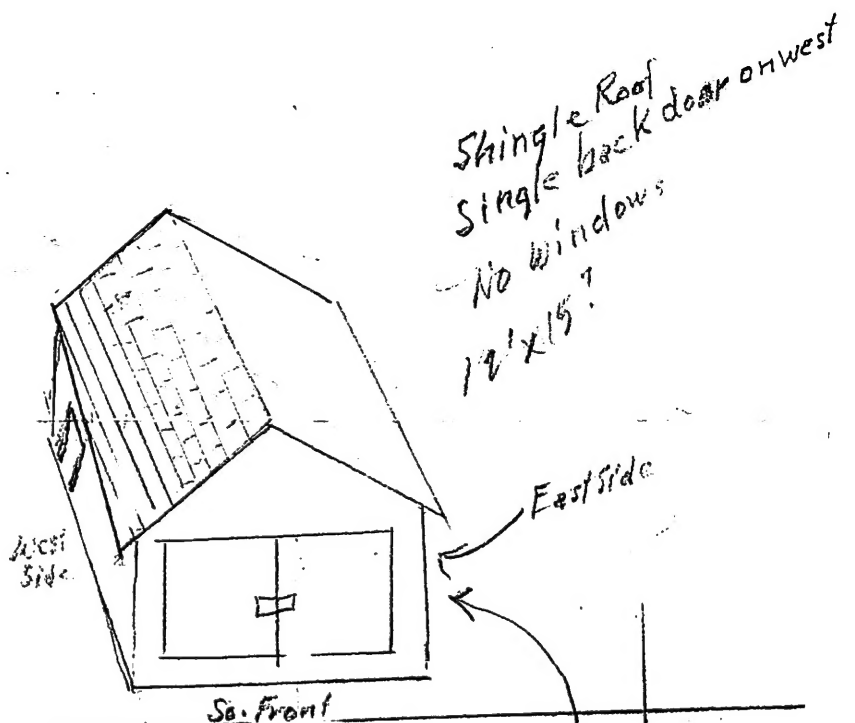 Shingle Roof
Single back door on west
No windows
East Side
West
Side
So. Front